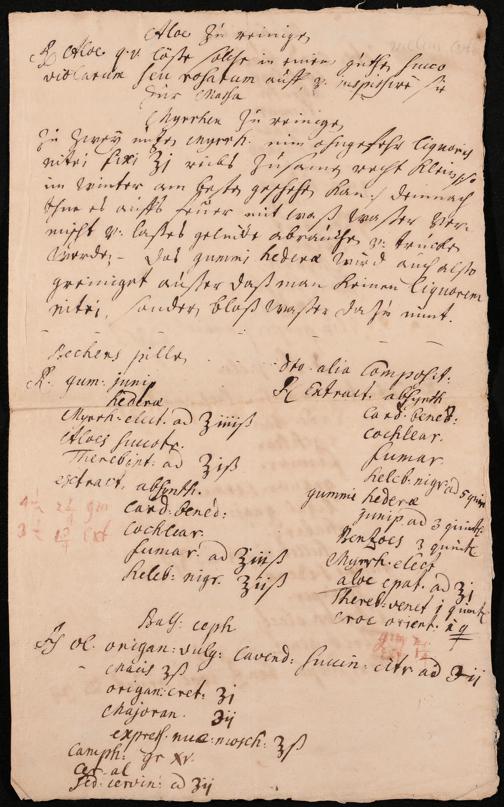 Aloe Zu reinigen
℞ Aloe q.v. löste solche in einem guthen Succo
violarum seu rosarum auff v. inspissire sie
zur Massa
Myrrhen Zu reinigen
Zu zwey myrrh. nim ohngefehr liquoris
nitri fixi ʒj reibs Zusamen recht klein, so
im winter am besten geschehen kan; demnach
thue es auffs feuer mit waß waßer ver-
mischt v: laßes gelinde abrauchen v: trucken
werden. - Das gummi hederæ wird auch also
gereiniget außer daß man keinen liquorem
nitri, sondern bloß waßer dazu nimt.
Bechers pillen
℞. gum: junip
hederæ
Myrrh. elect. ad ʒiiiß
Aloes succotr.
Therebint. ad ʒiß
extract. absynth.
Card: bened:
cochlear.
fumar. ad ʒiiß
heleb: nigr. ʒiiß
dto alia Composit:
℞ Extract. absynth
Card: bened:
Cochlear.
fumar.
heleb: nigr: ad 5 quint
gummi hederæ
junip ad 3 quintl
Benzoes 3 quintl
Myrrh. elect
aloe epat. ad ʒj
Thereb: venet 1 quintl
croc orient.
Bals: ceph
℞ ol. origan: vulg: Lavend: succin: citr ad ʒij
Macis ʒß
origan: cret: ʒj
Majoran. ʒij
express. nuc: mosch: ʒß
Camph: gr xv.
cer. al
sed: cervin: ad ʒij